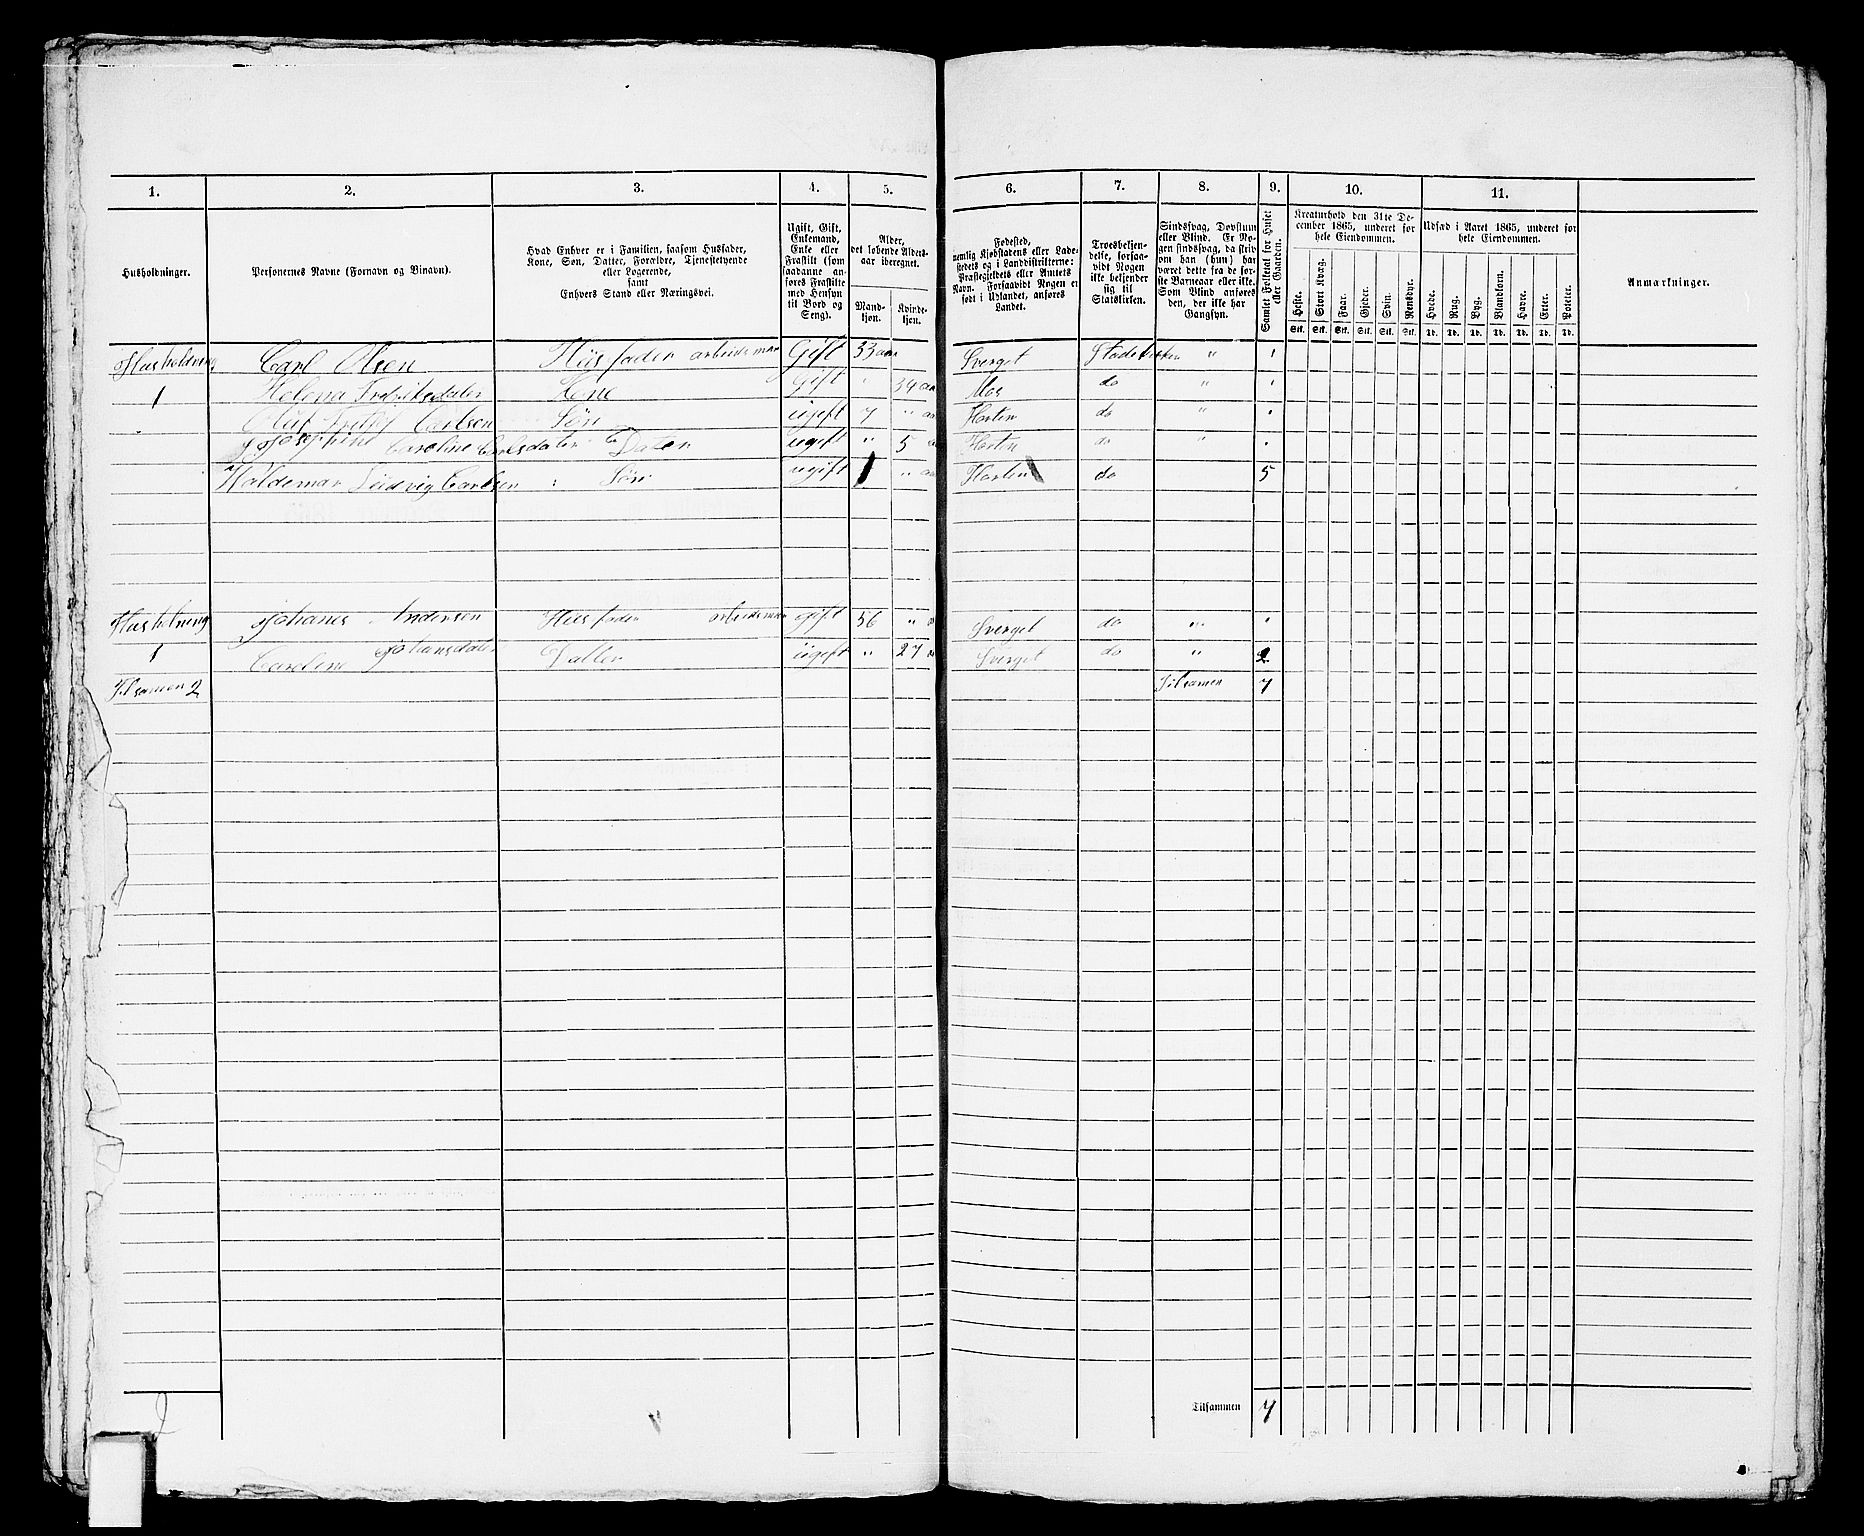 1. 2. 3. 4. 5. 6. 7. 8. 9. 10. 11.
Husholdninger.
Personernes Navne (Fornavn og Binavn).
Hvad Enhver er i Familien, saasom Husfader,
Kone, Søn, Datter, Forældre, Tjenestetyende
eller Logerende,
samt
Enhvers Stand eller Næringsvei.
Ugift, Gift,
Enkemand,
Enke eller
Fraskilt (som
saadanne an-
føres Fraskilte
med Hensyn
til Bord og
Seng).
Alder,
det løbende Alders-
aar iberegnet.
Mand-
kjøn.
Kvinde-
kjøn.
Fødested,
nemlig Kjøbstadens eller Lade-
stedets og i Landdistrikterne:
Præstegjeldets eller Amtets
Navn. Forsaavidt Nogen er
født i Udlandet, anføres
Landet.
Troesbekjen-
delse, forsaa-
vidt Nogen
ikke bekjender
sig til
Statskirken.
Sindssvag, Døvstum
eller Blind. Er No-
gen sindssvag, da skriv
om han (hun) har
været dette fra de før-
ste Barneaar eller ikke.
Som Blind anføres
den, der ikke har
Gangsyn.
Samlet Folketal for Huset
eller Gaarden.
Kreaturhold den 31te De-
cember 1865, underet for
hele Eiendommen.
Heste. Stort Kvæg. Faar. Gjeder. Svin. Rensdyr.
Stk. Stk. Stk. Stk. Stk. Stk.
Udsæd i Aaret 1865, underet for
hele Eiendommen.
Hvede. Rug. Byg. Blandkorn. Havre. Erter. Poteter.
Td. Td. Td. Td. Td. Td. Td.
Anmærkninger.
Husholdning Carl Olsen Huusfader arbeidsman Gift 33 aar Sverget Stadskirken "
1 Helena Fredriksdater Kone Gift " 34 aar Mos do "
Oluf Carlsen Søn ugift 7 " Horten do "
Josephine Caroline Carlsdater Dater ugift " 5 Horten do "
Valdemar Ludvig Carlsen Søn ugift 1 " Horten do 5
Husholning Johanes Andersen Huusfader arbeidsman gift 56 " Sverget do "
1 Caroline Johansdater Datter ugift " 27 Sverget do " 2
Tilsamen 2 Tilsamen 7
2
Tilsammen 7